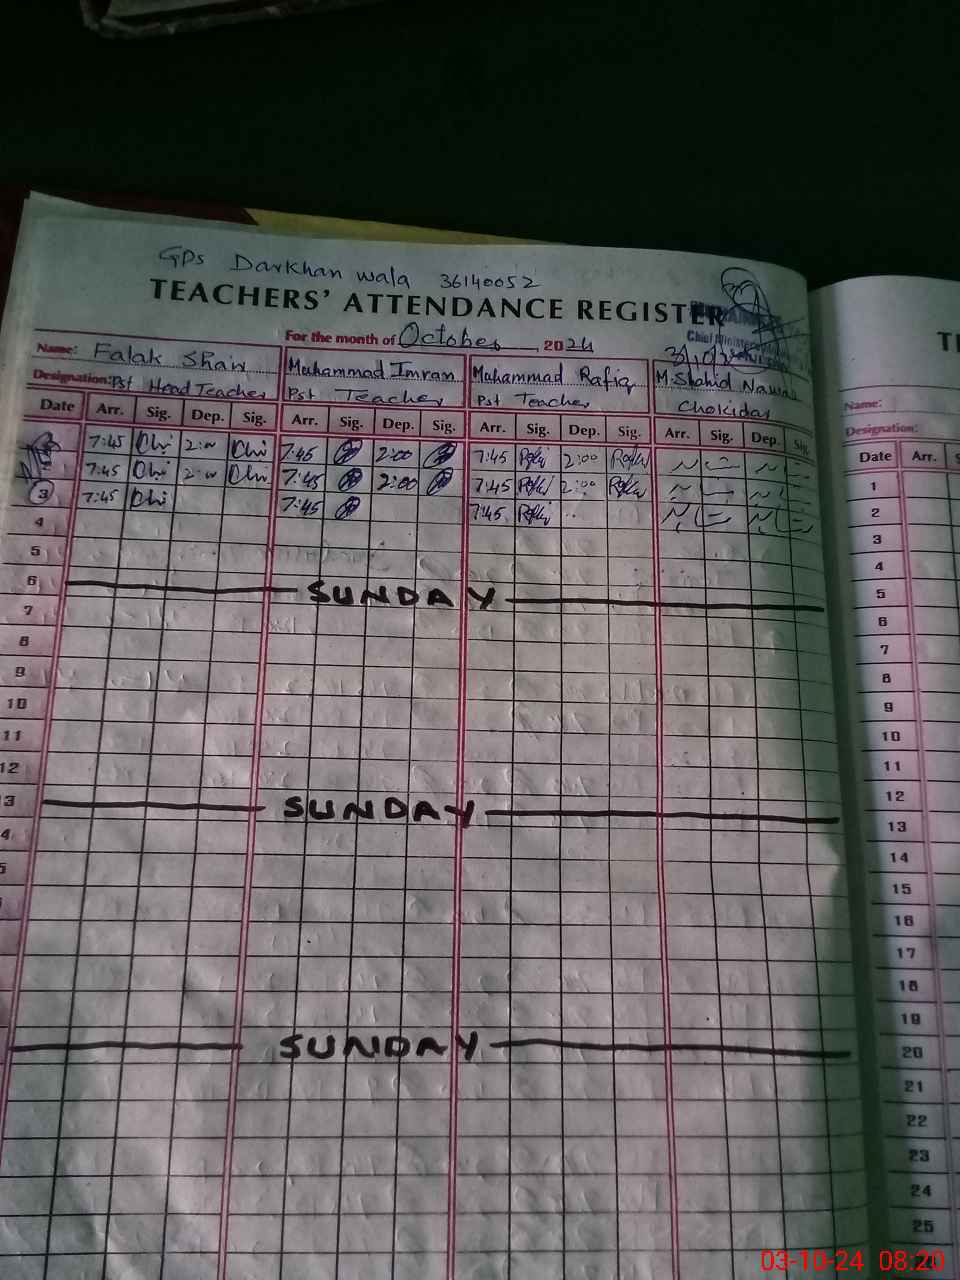 GPS Darkhan wala 36140052
TEACHERS' ATTENDANCE REGISTER
For the month of October 2024
Chief Minister
Name: Falak Sher Muhammad Imran Muhammad Rafiq M. Shahid Nawaz
Designation: Pst Head Teacher Pst Teacher Pst Teacher Chokidar
Date Arr. Sig. Dep. Sig. Arr. Sig. Dep. Sig. Arr. Sig. Dep. Sig. Arr. Sig. Dep. Sig.
7:45 2:00 7:45 2:00 7:45 2:00
7:45 2:00 7:45 2:00 7:45 2:00
3 7:45 7:45 7:45
4
5
6 SUNDAY
7
8
9
10
11
12
3 SUNDAY
4
5
SUNDAY
Name:
Designation:
Date Arr.
1
2
3
4
5
6
7
8
9
10
11
12
13
14
15
16
17
18
19
20
21
22
23
24
25
03-10-24 08:20